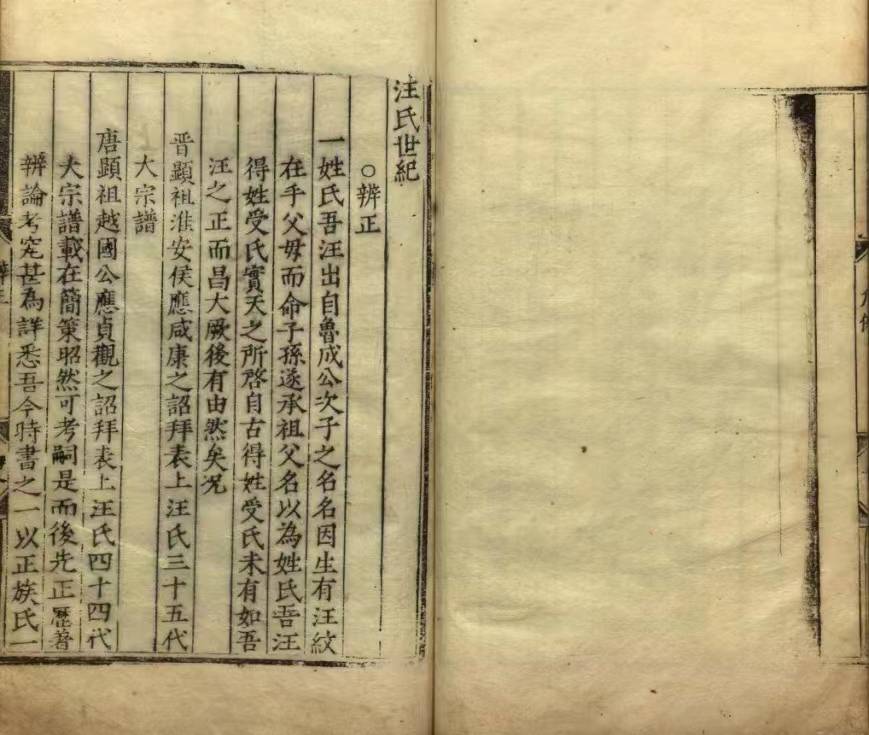 汪氏世紀
○辨正
一姓氏吾汪出自魯成公次子之名名因生有汪紋
在乎父母而命子孫遂承祖父名以為姓氏吾汪
得姓受氏實天之所啓自古得姓受氏未有如吾
汪之正而昌大厥後有由然矣况
晋顕祖淮安侯應咸康之詔拜表上汪氏三十五代
大宗譜
唐顕祖越國公應貞觀之詔拜表上汪氏四十四代
大宗譜載在簡策昭然可考嗣是而後先正歷著
辨論考究甚為詳悉吾今時書之一以正族氏一